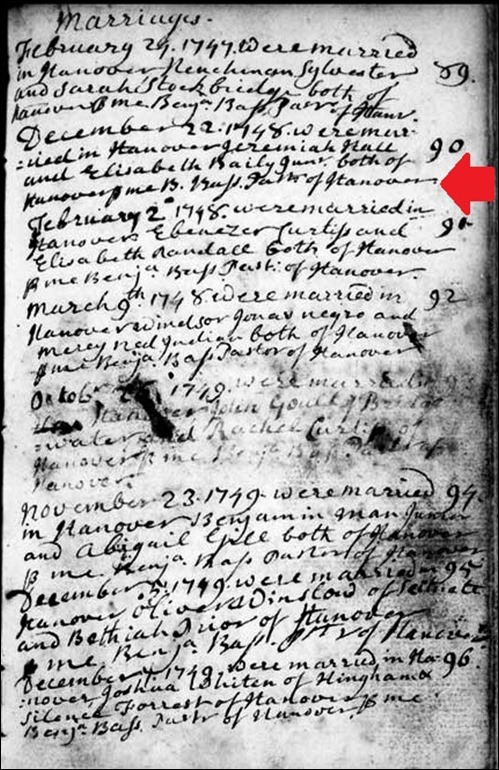 Marriages.
February 29. 1747. were married
in Hanover Nenchman Sylvester 89.
and Sarah Stockbridge both of
Hanover p me Benja. Bass. Pastr. of Hanr.
December 22. 1748. were mar-
=ried in Hanover Jeremiah Hall 90
and Elisabeth Baily Junr. both of
Hanover p me B. Bass. Pastr of Hanover
February 2d 1748. were married in
Hanover Ebenezer Curtiss and 91
Elisabeth Randall both of Hanover
p me Benja Bass Pastr. of Hanover.
March 9th 1748 were married in 92
Hanover Windsor Jonas negro and
mercy Red Indian both of Hanover
p me Benja. Bass Pastor of Hanover
Octobr 1749. were married in 93
Hanover John Gould of Bridge
=water and Rachel Curtiss of
Hanover p me Benja Bass Pastor of
Hanover.
November 23. 1749. were married 94.
in Hanover Benjamin Man Junior
and Abigail Gill both of Hanover
p me Benja Bass Pastor of Hanover
December 1749 were married in 95
Hanover Oliver Winslow of Scituate
and Bethiah Prior of Hanover
p me Benja Bass. Pastr of Hanover
December 7. 1749. were married in Ha- 96.
=nover Joshua Whiten of Hingham &
Silence Forrest of Hanover p me
Benja. Bass Pastr of Hanover.